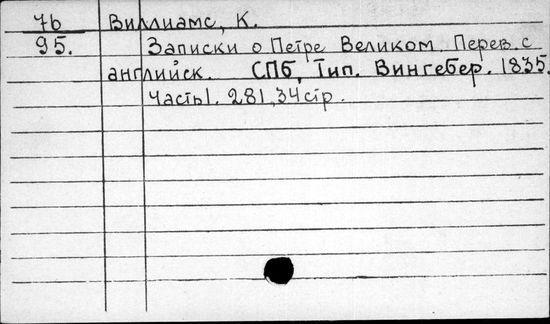 76 Виллиамс, К.
95. Записки о Петре Великом. Перев. с
английск. СПб, Тип. Вингебер. 1835.
Часть 1. 281, 34 стр.